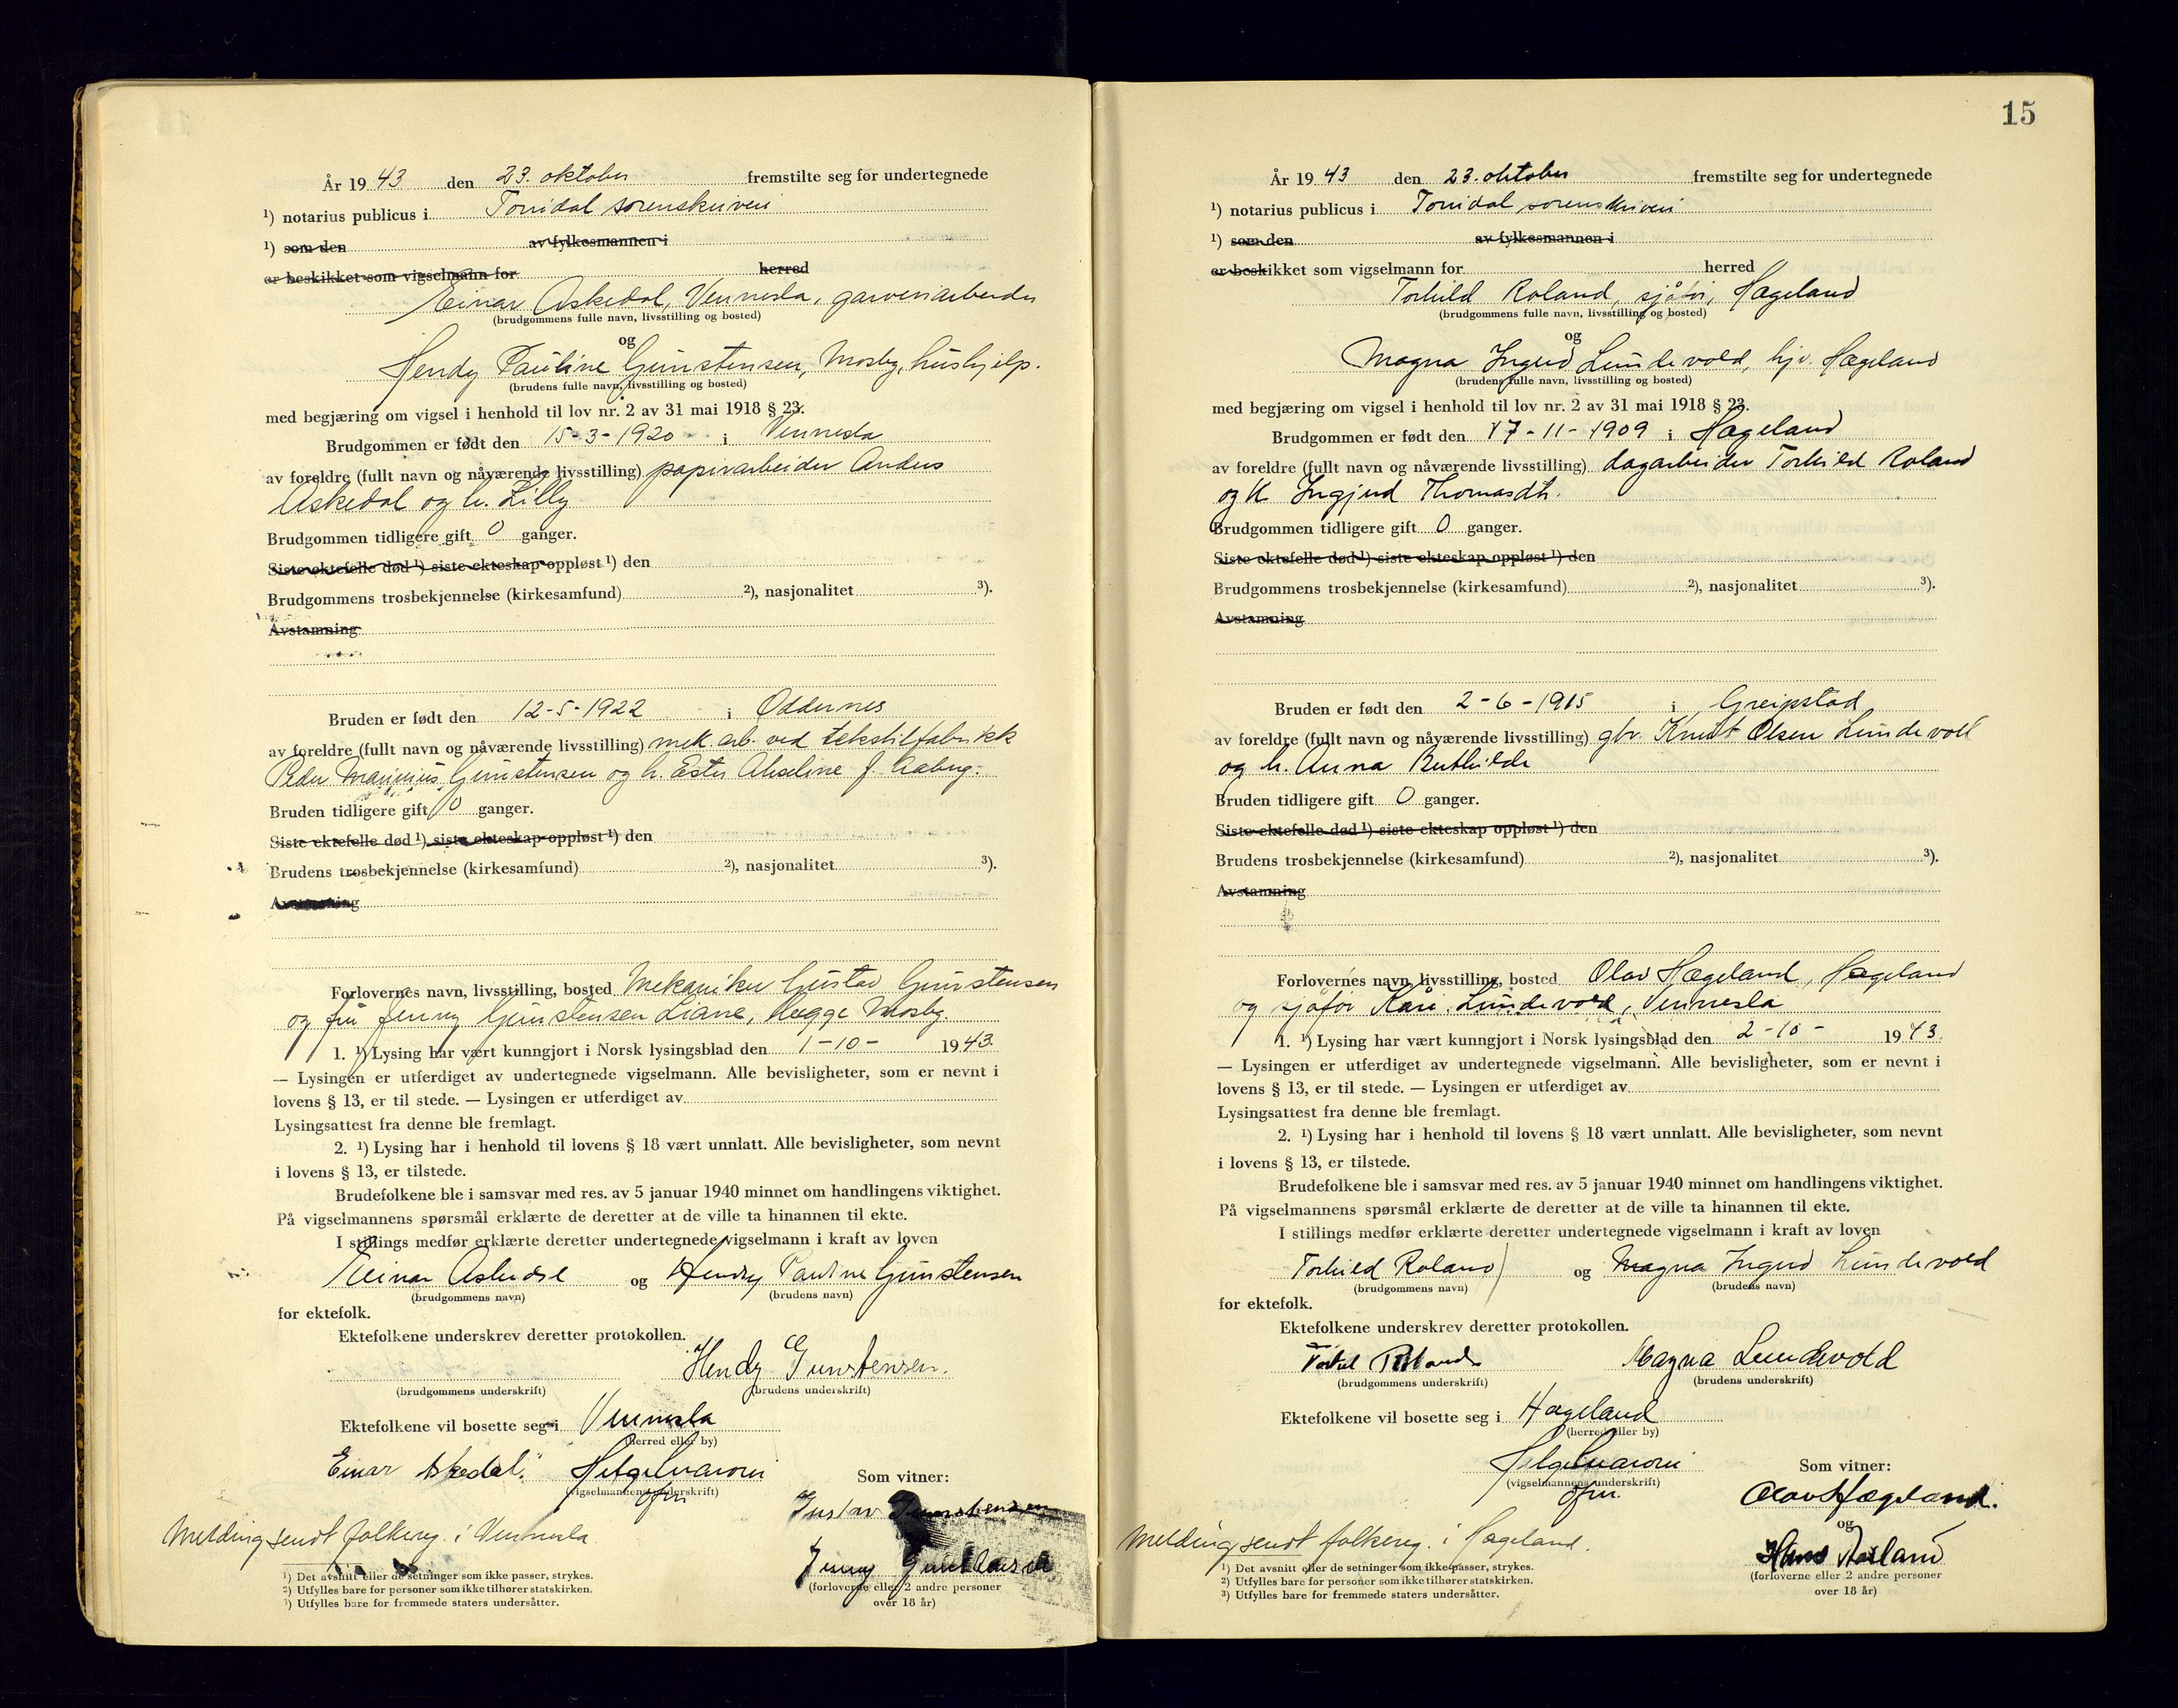 År 1943 den 23. oktober fremstilte seg for undertegnede
¹) notarius publicus i Torridal sorenskriveri
¹) som den av fylkesmannen i
er beskikket som vigselmann for herred
Einar Askedal, Vennesla, garveriarbeider
(brudgommens fulle navn, livsstilling og bosted)
og
Hendy Pauline Gunstensen, Mosby, hushjelp.
(brudens fulle navn, livsstilling og bosted)
med begjæring om vigsel i henhold til lov nr. 2 av 31 mai 1918 § 23.
Brudgommen er født den 15-3-1920 i Vennesla
av foreldre (fullt navn og nåværende livsstilling) papirarbeider Anders
Askedal og h. Lilly
Brudgommen tidligere gift 0 ganger.
Siste ektefelle død ¹) siste ekteskap oppløst ¹) den
Brudgommens trosbekjennelse (kirkesamfund) ²), nasjonalitet ³).
Avstamning
Bruden er født den 12-5-1922 i Oddernes
av foreldre (fullt navn og nåværende livsstilling) mek. arb. ved tekstilfabrikk
Peder Marinius Gunstensen og h. Ester Alseline f. Aaberg.
Bruden tidligere gift 0 ganger.
Siste ektefelle død ¹) siste ekteskap oppløst ¹) den
Brudens trosbekjennelse (kirkesamfund) ²), nasjonalitet ³).
Avstamning
Forlovernes navn, livsstilling, bosted Mekaniker Gustav Gunstensen
og fru Jenny Gunstensen Liane, Hegge Mosby.
1. ¹) Lysing har vært kunngjort i Norsk lysingsblad den 1-10- 1943.
— Lysingen er utferdiget av undertegnede vigselmann. Alle bevisligheter, som er nevnt i
lovens § 13, er til stede. — Lysingen er utferdiget av
Lysingsattest fra denne ble fremlagt.
2. ¹) Lysing har i henhold til lovens § 18 vært unnlatt. Alle bevisligheter, som nevnt
i lovens § 13, er tilstede.
Brudefolkene ble i samsvar med res. av 5 januar 1940 minnet om handlingens viktighet.
På vigselmannens spørsmål erklærte de deretter at de ville ta hinannen til ekte.
I stillings medfør erklærte deretter undertegnede vigselmann i kraft av loven
Einar Askedal og Hendy Pauline Gunstensen
(brudgommens navn) (brudens navn)
for ektefolk.
Ektefolkene underskrev deretter protokollen.
Hendy Gunstensen.
(brudgommens underskrift) (brudens underskrift)
Ektefolkene vil bosette seg i Vennesla
(herred eller by)
Einar Askedal.
(vigselmannens underskrift)
Som vitner:
Gustav Gunstensen
og
Jenny Gunstensen
(forloverne eller 2 andre personer
over 18 år)
Melding sendt folkereg. i Vennesla
¹) Det avsnitt eller de setninger som ikke passer, strykes.
²) Utfylles bare for personer som ikke tilhører statskirken.
³) Utfylles bare for fremmede staters undersåtter.
15
År 1943 den 23. oktober fremstilte seg for undertegnede
¹) notarius publicus i Torridal sorenskriveri
¹) som den av fylkesmannen i
er beskikket som vigselmann for herred
Torkild Roland, sjåfør, Hægeland
(brudgommens fulle navn, livsstilling og bosted)
og
Magna Ingrid Lundevold, hjv. Hægeland
(brudens fulle navn, livsstilling og bosted)
med begjæring om vigsel i henhold til lov nr. 2 av 31 mai 1918 § 23.
Brudgommen er født den 17-11-1909 i Hægeland
av foreldre (fullt navn og nåværende livsstilling) dagarbeider Torkild Roland
og h. Ingjerd Thomasdtr.
Brudgommen tidligere gift 0 ganger.
Siste ektefelle død ¹) siste ekteskap oppløst ¹) den
Brudgommens trosbekjennelse (kirkesamfund) ²), nasjonalitet ³).
Avstamning
Bruden er født den 2-6-1915 i Greipstad
av foreldre (fullt navn og nåværende livsstilling) gbr. Knut Olsen Lundevold
og h. Anna Buthilde
Bruden tidligere gift 0 ganger.
Siste ektefelle død ¹) siste ekteskap oppløst ¹) den
Brudens trosbekjennelse (kirkesamfund) ²), nasjonalitet ³).
Avstamning
Forlovernes navn, livsstilling, bosted Olav Hægeland, Hægeland
og sjåfør Kåre Lundevold, Vennesla
1. ¹) Lysing har vært kunngjort i Norsk lysingsblad den 2-10- 1943.
— Lysingen er utferdiget av undertegnede vigselmann. Alle bevisligheter, som er nevnt i
lovens § 13, er til stede. — Lysingen er utferdiget av
Lysingsattest fra denne ble fremlagt.
2. ¹) Lysing har i henhold til lovens § 18 vært unnlatt. Alle bevisligheter, som nevnt
i lovens § 13, er tilstede.
Brudefolkene ble i samsvar med res. av 5 januar 1940 minnet om handlingens viktighet.
På vigselmannens spørsmål erklærte de deretter at de ville ta hinannen til ekte.
I stillings medfør erklærte deretter undertegnede vigselmann i kraft av loven
Torkild Roland og Magna Ingrid Lundevold
(brudgommens navn) (brudens navn)
for ektefolk.
Ektefolkene underskrev deretter protokollen.
Torkel Roland Magna Lundevold
(brudgommens underskrift) (brudens underskrift)
Ektefolkene vil bosette seg i Hægeland
(herred eller by)
(vigselmannens underskrift)
Som vitner:
Olav Hægeland.
og
(forloverne eller 2 andre personer
over 18 år)
Melding sendt folkereg. i Hægeland.
¹) Det avsnitt eller de setninger som ikke passer, strykes.
²) Utfylles bare for personer som ikke tilhører statskirken.
³) Utfylles bare for fremmede staters undersåtter.